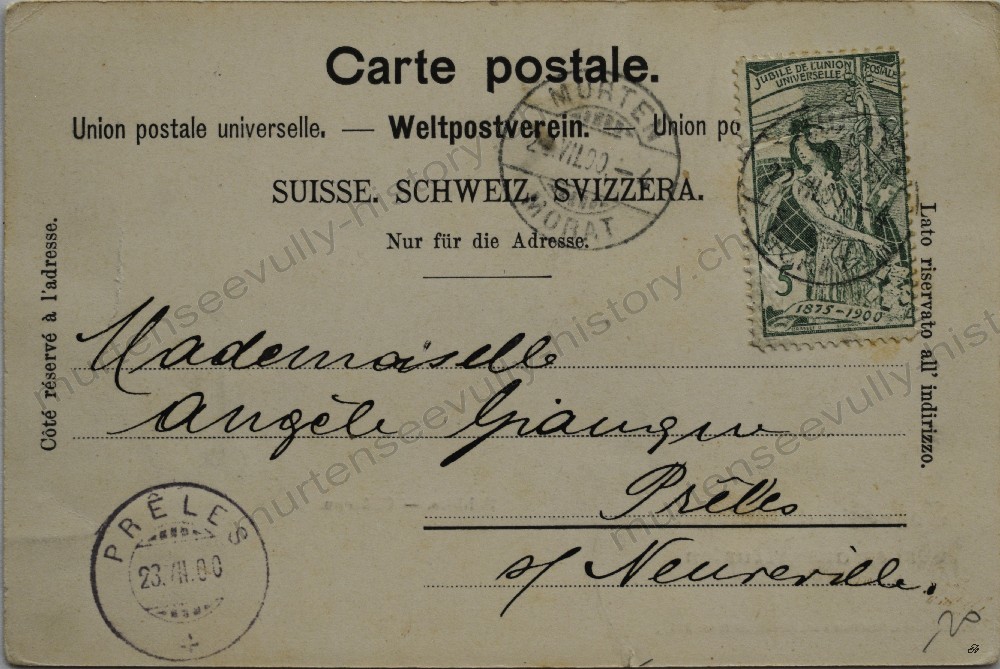 Carte postale.
Union postale universelle. — Weltpostverein. — Union po
SUISSE. SCHWEIZ. SVIZZERA.
Nur für die Adresse.
Côté réservé à l'adresse.
Lato riservato all' indirizzo.
JUBILÉ DE L'UNION POSTALE
UNIVERSELLE
5
1875-1900
MURTEN
VII.00.
MORAT
Mademoiselle
Angèle Giauque
Prêles
s/ Neuveville.
PRÊLES
23.VII.00
murtenseevully-history.ch
murtenseevully-history.ch
murtenseevully-history.ch